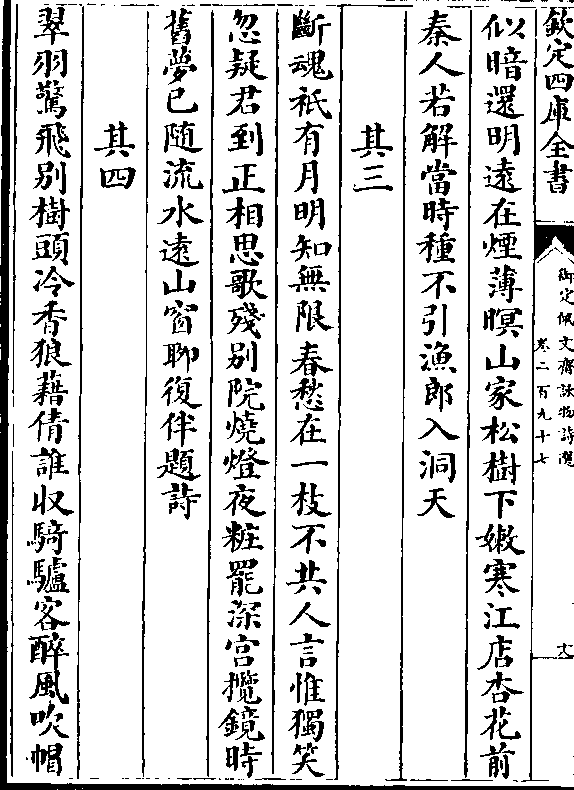 欽定四庫全書
御定佩文齋詠物詩選
卷二百九十七
似暗還明遠在煙薄暝山家松樹下嫩寒江店杏花前
秦人若解當時種不引漁郎入洞天
其三
斷魂祇有月明知無限春愁在一枝不共人言惟獨笑
忽疑君到正相思歌殘别院燒燈夜粧罷深宫攬鏡時
舊夢已随流水逺山窗聊復伴題詩
其四
翠羽驚飛别樹頭冷香狼藉倩誰收騎驢客醉風吹帽